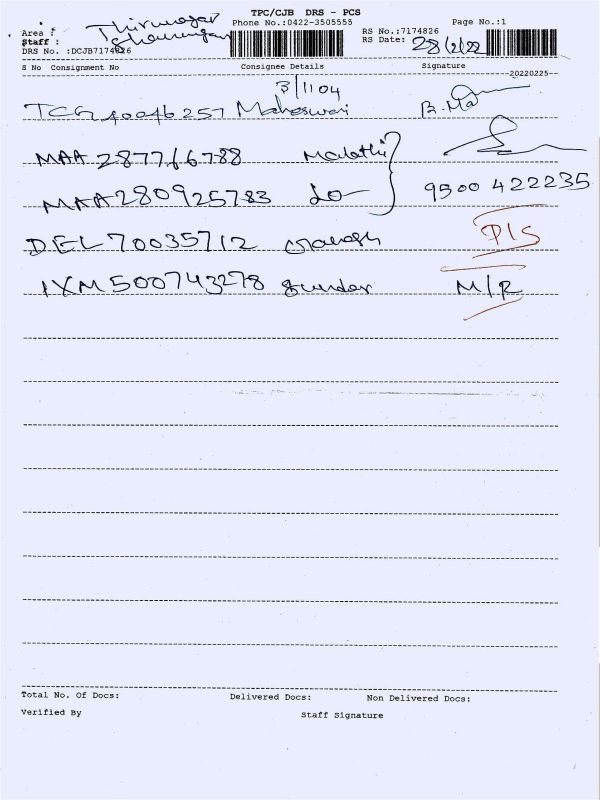 TPC/CJB DRS - PCS
Phone No.:0422-3505555 Page No.:1
Area : Thirunagar
Staff : Shanmugan
DRS No. :DCJB7174826
RS No.:7174826
RS Date: 28/2/22
S No Consignment No Consignee Details Signature
20220225
3/1104
TCG40046257 Maheswari B. Ma
MAA 287716788 Malathi
MAA280925783 Do 9500 422235
DEL70035712 P/S
IXM500743278 Sundar M/R
Total No. Of Docs: Delivered Docs: Non Delivered Docs:
Verified By Staff Signature